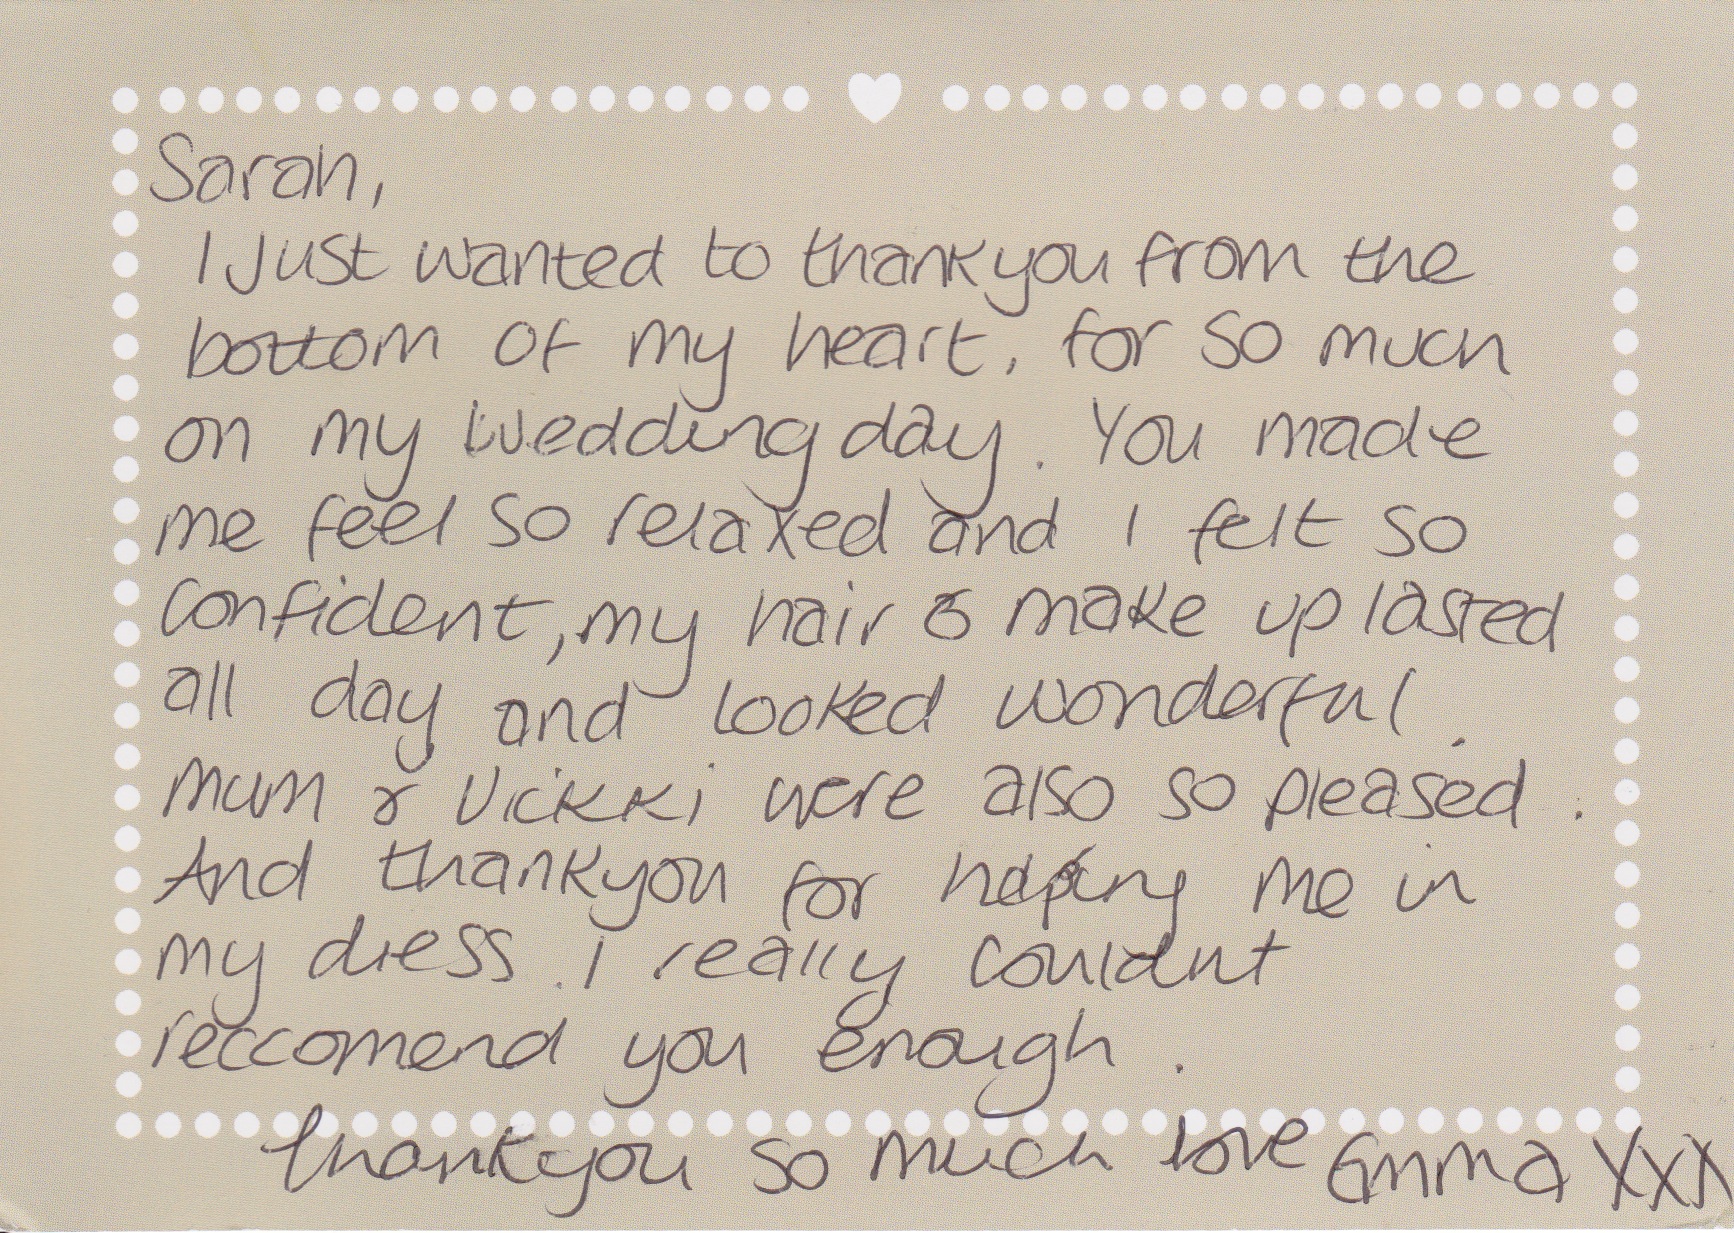 Sarah,
I Just wanted to thankyou from the
bottom of my heart, for so much
on my wedding day. You made
me feel so relaxed and I felt so
confident, my hair & make up lasted
all day and looked wonderful.
Mum & Vickki were also so pleased.
And thankyou for helping me in
my dress. I really couldnt
reccomend you enough.
Thankyou so much love Emma XXX